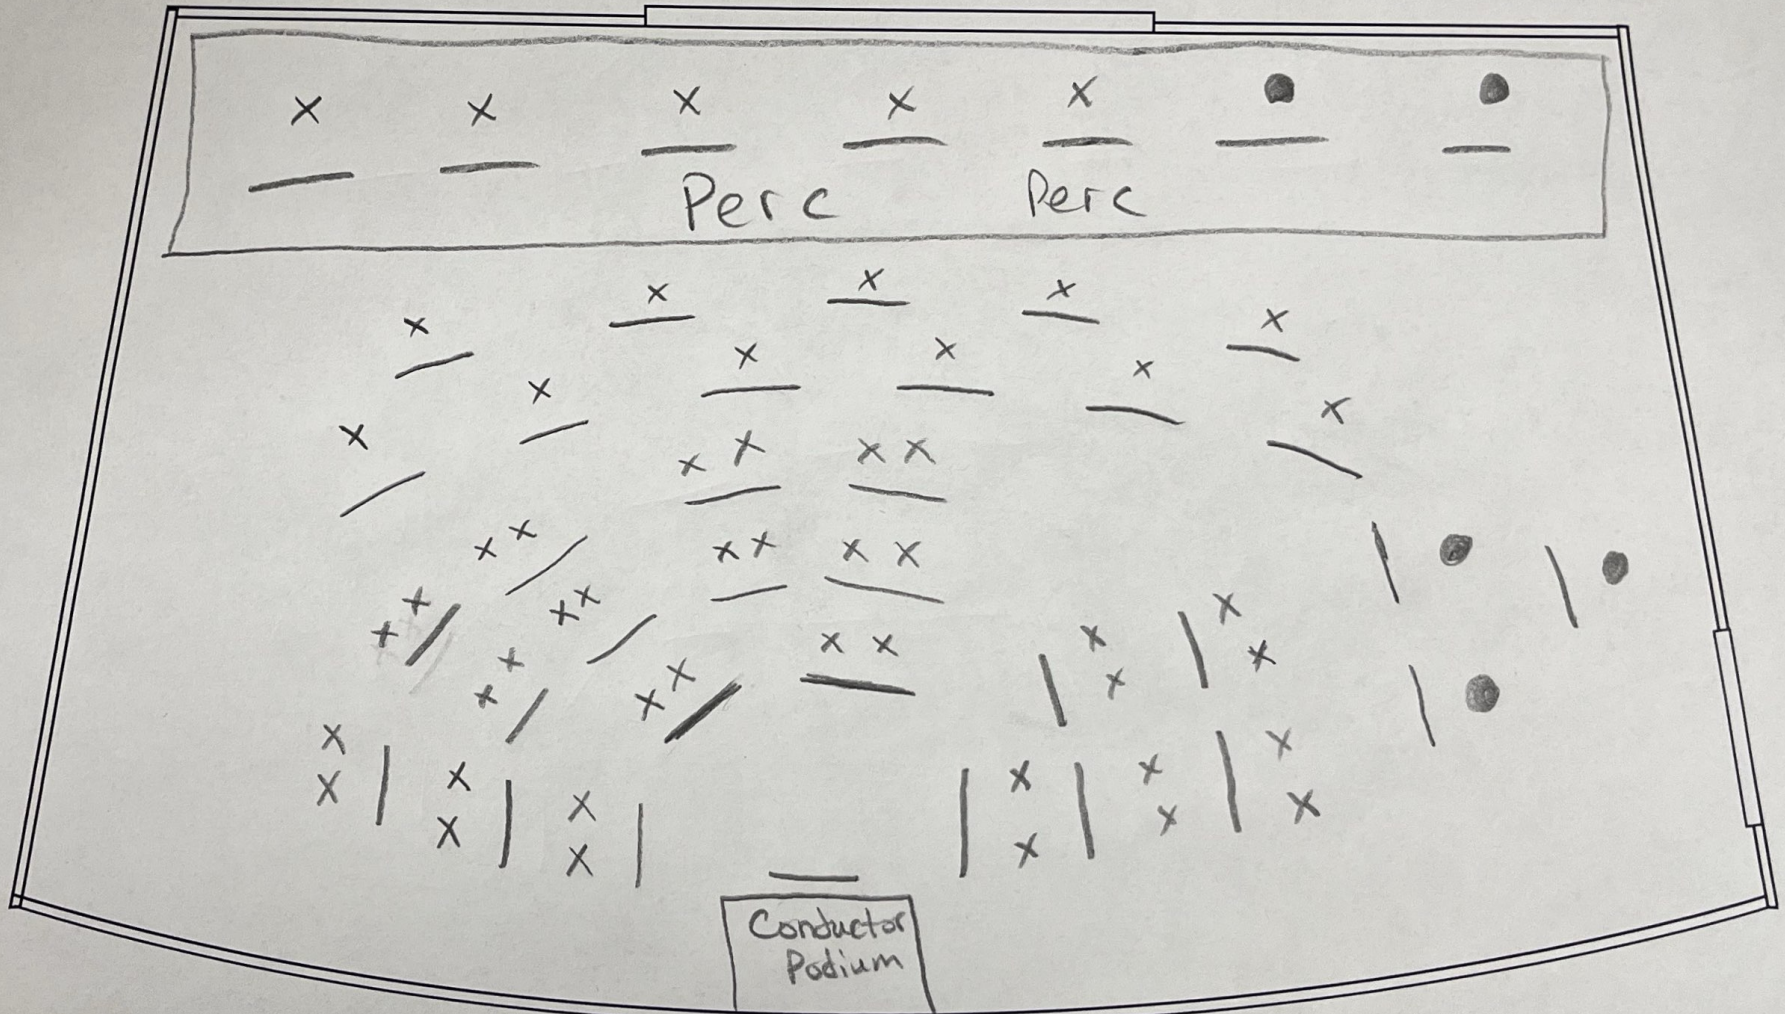 Perc Perc
Conductor
Podium